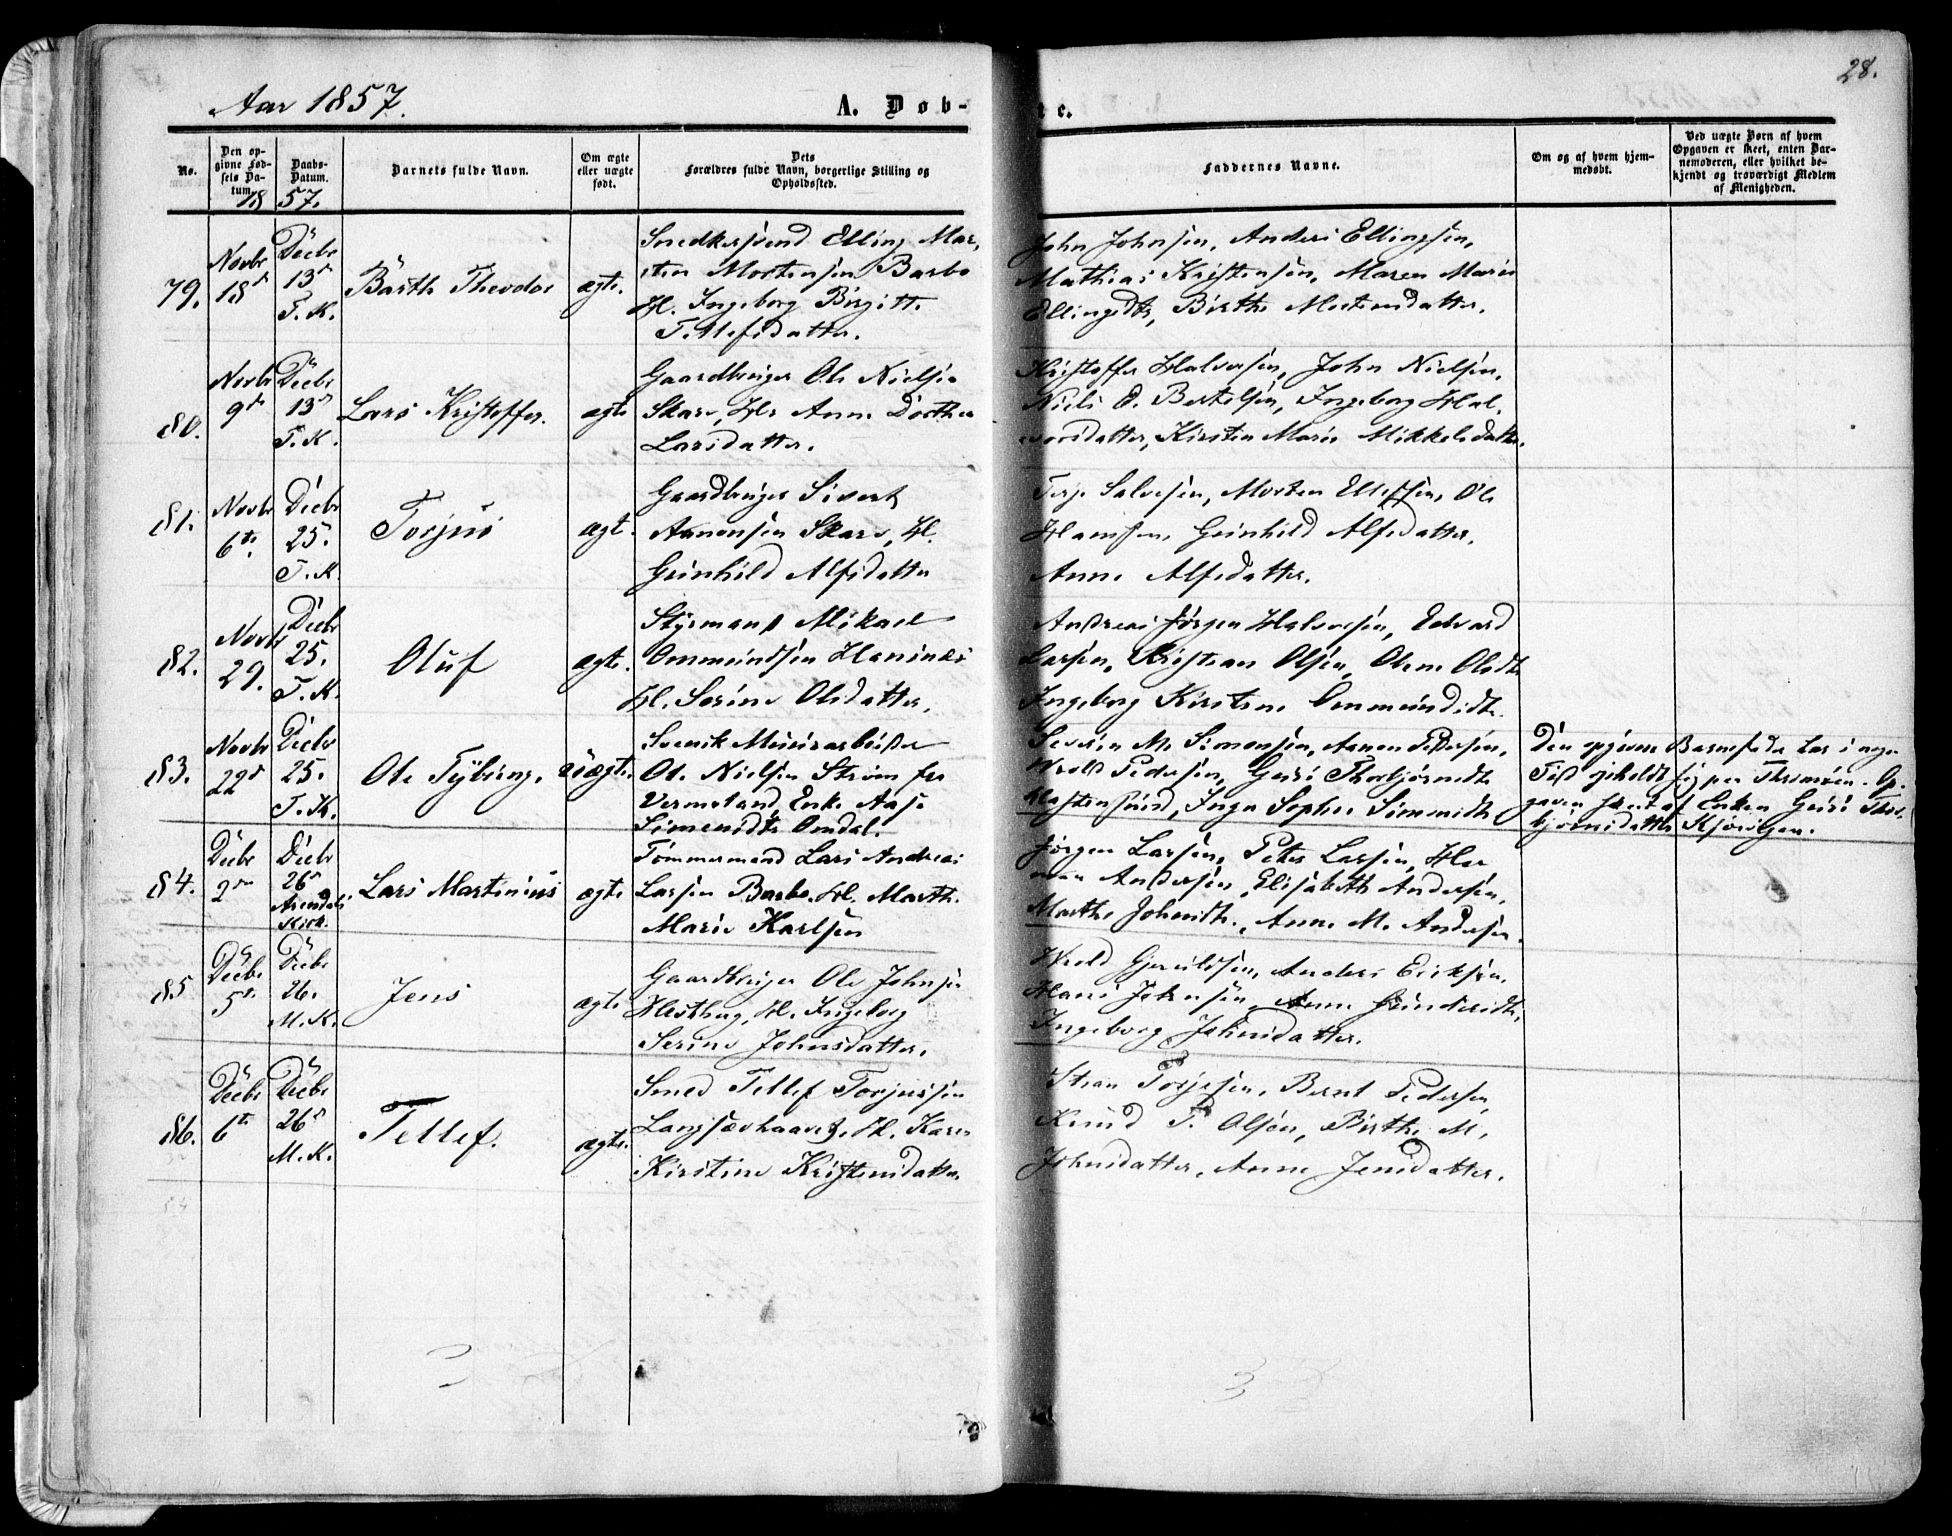 28.
Aar 1857.
A. Døb-
te.
No.
Den op-
givne Fød-
sels Da-
tum.
Daabs-
Datum.
Barnets fulde Navn.
Om ægte
eller uægte
født.
Dets
Forældres fulde Navn, borgerlige Stilling og
Opholdssted.
Faddernes Navne.
Om og af hvem hjem-
medøbt.
Ved uægte Børn af hvem
Opgaven er skeet, enten Bar-
nemoderen, eller hvilket be-
kjendt og troværdigt Medlem
af Menigheden.
18 57.
79.
Novbr
18d
Decbr
13d
T. K.
Barth Theodor
ægte.
Snedkersvend Elling Mor-
ten Mortensen Barbo
H. Ingeborg Birgitte
Tellefsdatter.
John Johnsen, Anders Ellingsen,
Mathias Kristensen, Maren Marie
Ellingsdtr, Birthe Mortensdatter.
80.
Novbr
9de
Decbr
13d
T. K.
Lars Kristoffer.
ægte
Gaardbruger Ole Nielsen
Skare, H. Anne Dorthea
Larsdatter.
Kristoffer Halvorsen, John Nielsen,
Niels O. Bertelsen, Ingeborg Hal-
vorsdatter, Kirsten Marie Mikkelsdatter.
81.
Novbr
6te.
Decbr
25.
T. K.
Torjus
ægte.
Gaardbruger Sivert
Aanonsen Skare, H.
Gunhild Alfsdatter
Terje Salvesen, Morten Ellefsen, Ole
Hansen, Gunhild Alfsdatter,
Anne Alfsdatter.
82.
Novbr
29.
Decbr
25.
T. K.
Oluf
ægte.
Styrmand Mikael
Ommundsen Hanines
H. Serine Olsdatter,
Andreas Jørgen Halvorsen, Edvard
Larsen, Kristian Olsen, Olene Olsdtr
Ingeborg Kirstine Ommundsdtr.
83.
Novbr
22d
Decbr
25.
T. K.
Ole Tybring.
uægte.
Svensk Muurarbeider
Ole Nielsen Strøm fra
Vermeland, Enke Aase
Simensdtr Omdal.
Severin M. Simonsen, Aanon Pedersen,
Wrold Pedersen, Guro Thorbjørnsdtr
Hastensund, Inger Sophie Simensdtr
Den opgivne Barnefader har i nogen
Tid opholdt sig paa Thromøen. Op-
gaven skeet af Enken Guro Thor-
bjørnsdatter
84.
Decbr
2den
Decbr
26d
Arendals
Kirk.
Lars Martinius
ægte
Tømmermand Lars Andreas
Larsen Barbo. H. Marthe
Marie Karlsen
Jørgen Larsen, Peter Larsen, Her
man Andersen, Elisabeth Andersen,
Marthe Johnsdtr., Anne M. Andersen.
85
Decbr
5te
Decbr
26.
M. K.
Jens
ægte
Gaardbruger Ole Johnsen
Hesthag, H. Ingeborg
Serine Johnsdatter,
Wrold Gjeruldsen, Anders Ericksen,
Hans Johnsen, Anne Gundersdtr,
Ingeborg Johnsdatter.
86.
Decbr
6te
Decbr
26d
M. K.
Tellef.
ægte.
Smed Tellef Torjussen
Langsævhaavet, H. Karen
Kirstine Kristensdatter.
Stian Torjesen, Bernt Pedersen,
Knud T. Olsen, Birthe M.
Johnsdatter, Anne Jensdatter.